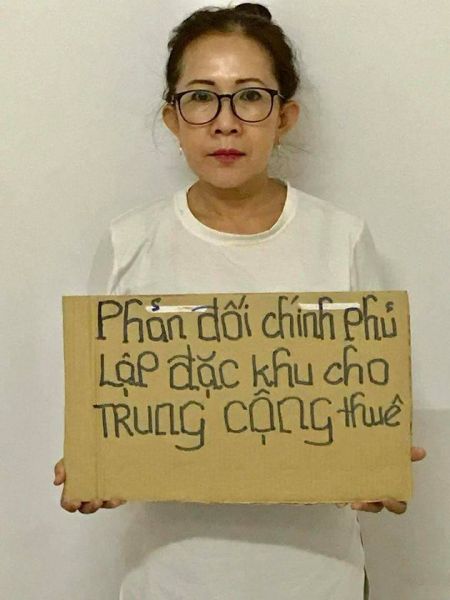 Phản đối chính phủ
LẬP đặc khu cho
TRUNG CỘNG thuê